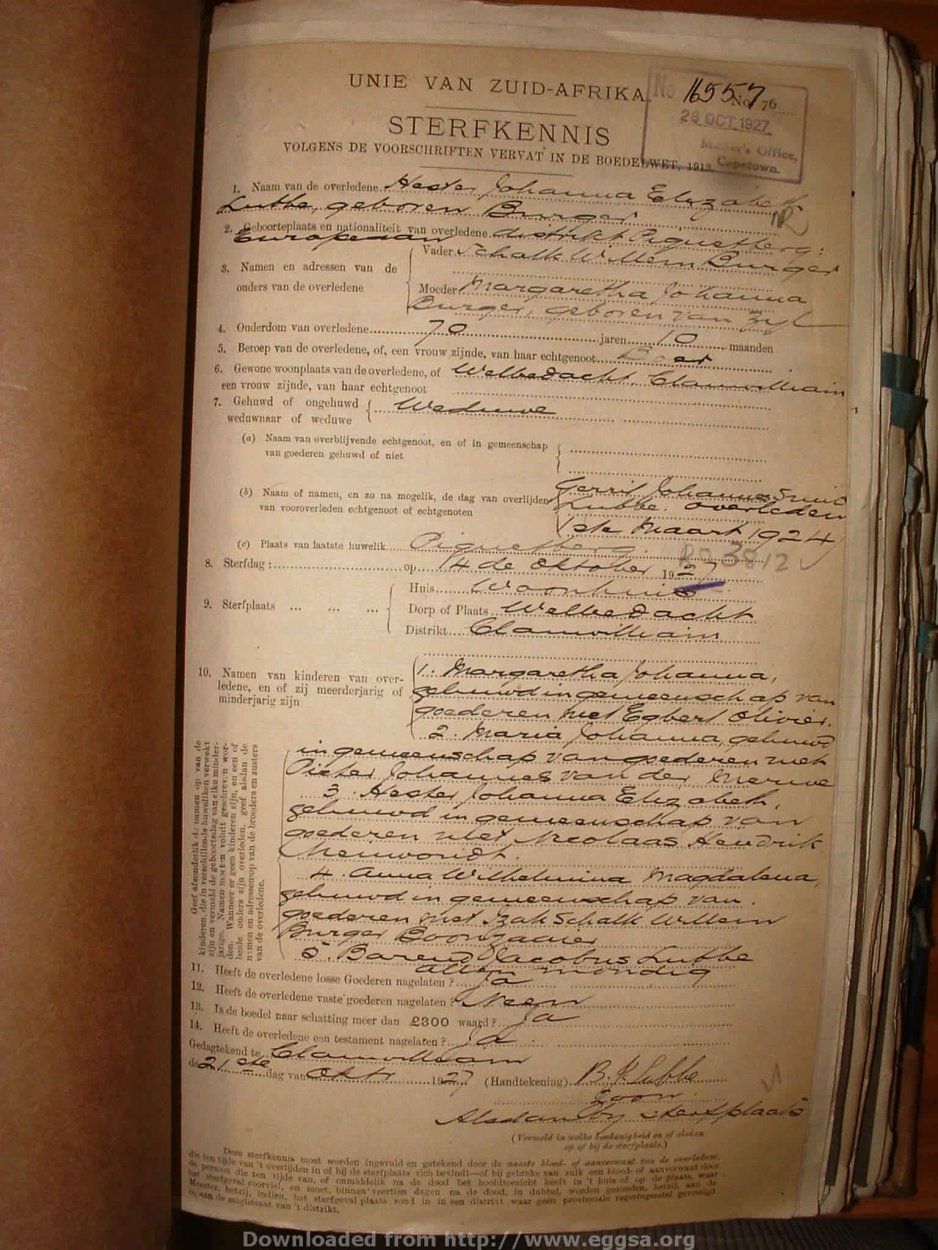 UNIE VAN ZUID-AFRIKA.
No 16557 No. 76
28 OCT 1927
Master's Office,
Capetown.
STERFKENNIS
VOLGENS DE VOORSCHRIFTEN VERVAT IN DE BOEDELWET, 1913.
1. Naam van de overledene Hester Johanna Elizabeth
Lubbe, geboren Burger
2. Geboorteplaats en nationaliteit van overledene distrikt Piquetberg:
Europeaan
3. Namen en adressen van de ouders van de overledene
Vader Schalk Willem Burger
Moeder Margaretha Johanna
Burger, geboren van Zyl
4. Ouderdom van overledene 70 jaren 10 maanden
5. Beroep van de overledene, of, een vrouw zijnde, van haar echtgenoot Boer
6. Gewone woonplaats van de overledene, of Welbedacht, Clanwilliam
een vrouw zijnde, van haar echtgenoot
7. Gehuwd of ongehuwd Weduwe
weduwnaar of weduwe
(a) Naam van overblijvende echtgenoot, en of in gemeenschap
van goederen gehuwd of niet
(b) Naam of namen, en zo na mogelik, de dag van overlijden
van vooroverleden echtgenoot of echtgenoten
Gerrit Johannes Smit
Lubbe. overleden
1ste Maart 1924
(c) Plaats van laatste huwelik Piquetberg.
3812
8. Sterfdag: op 14 de Oktober 1927
9. Sterfplaats
Huis Woonhuis
Dorp of Plaats Welbedacht
Distrikt Clanwilliam
10. Namen van kinderen van overledene, en of zij meerderjarig of
minderjarig zijn
1. Margaretha Johanna,
gehuwd in gemeenschap van
goederen met Egbert Olivier.
2. Maria Johanna, gehuwd
in gemeenschap van goederen met
Pieter Johannes van der Merwe
3. Hester Johanna Elizabeth,
gehuwd in gemeenschap van
goederen met Nicolaas Hendrik
Nieuwoudt.
4. Anna Wilhelmina Magdalena,
gehuwd in gemeenschap van
goederen met Izak Schalk Willem
Burger Boonzaaier
5. Barend Jacobus Lubbe
allen mondig
Geef afzonderlik de namen op van de
kinderen, die in verschillende huweliken verwekt
zijn en vermeld de geboortedag van elke minderjarige. Namen moeten voluit geschreven worden. Wanneer er geen kinderen zijn, en een of
beide ouders zijn overleden, geef alsdan de
namen en adressen op van de broeders en zusters
van de overledene.
11. Heeft de overledene losse Goederen nagelaten? Ja
12. Heeft de overledene vaste goederen nagelaten? Neen
13. Is de boedel naar schatting meer dan £300 waard? Ja
14. Heeft de overledene een testament nagelaten? Ja
Gedagtekend te Clanwilliam
de 21ste dag van Oktr 1927 (Handtekening) B. J. Lubbe
Zoon
Alsdan by sterfplaats
(Vermeld in welke hoedanigheid en of alsdan
op of bij de sterfplaats.)
Deze sterfkennis moet worden ingevuld en getekend door de naaste bloed- of aanverwant van de overledene,
die ten tijde van 't overlijden in of bij de sterfplaats zich bevindt—of bij gebreke van zulk een bloed- of aanverwant door
de persoon die ten tijde van, of onmiddellik na de dood het hoofdtoezicht heeft in 't huis of op de plaats, waar
het sterfgeval voorviel, en moet, binnen veertien dagen na de dood, in dubbel, worden gezonden, hetzij, aan de
Meester, hetzij, indien, het sterfgeval plaats vond in een distrikt waar geen provinciale regeringszetel gevestigd
is, aan de magistraat van 't distrikt.
Downloaded from http://www.eggsa.org